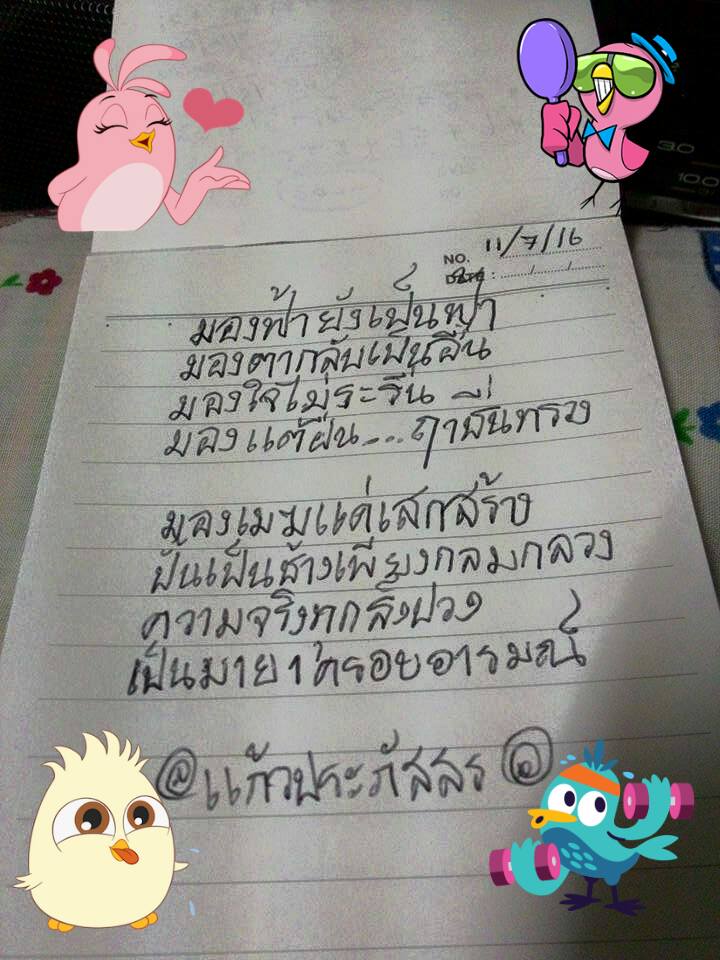 NO. 11/7/16
DATE : ....../....../......
มองฟ้ายังเป็นฟ้า
มองตากลับเป็นอื่น
มองใจไม่ระรื่น
มองแต่ฝืน...ฤาฉันทรวง
มองเมฆแค่เสกสร้าง
ปั้นเป็นช้างเพียงกลมกลวง
ความจริงทุกสิ่งปวง
เป็นมายาครอบอารมณ์
@แก้วประภัสสร@
30
100